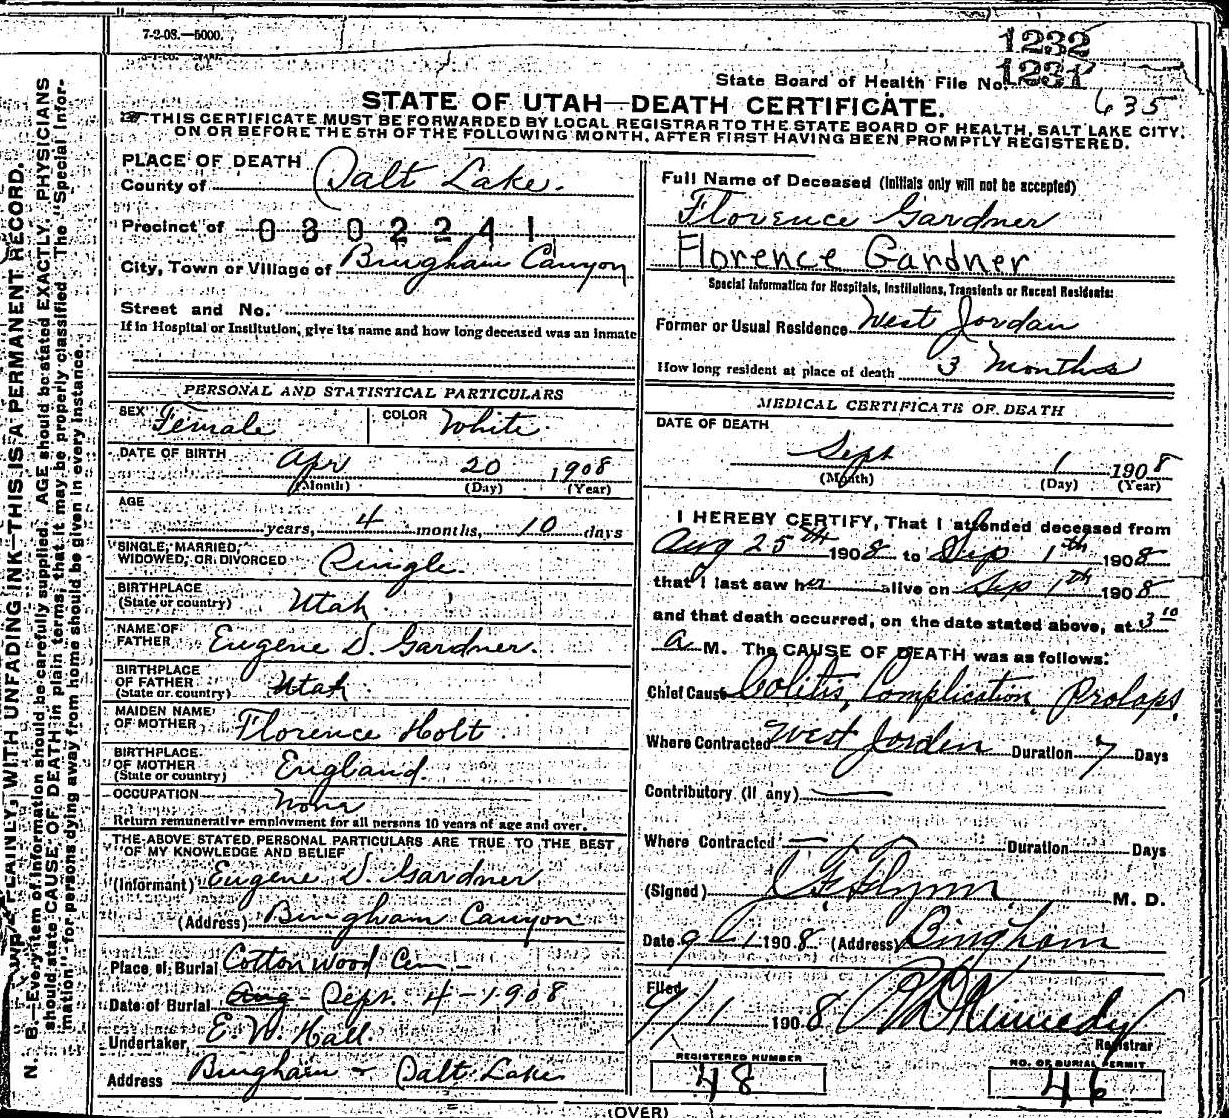 7-2-08.—5000.
1232
State Board of Health File No. 1231
635
STATE OF UTAH—DEATH CERTIFICATE.
THIS CERTIFICATE MUST BE FORWARDED BY LOCAL REGISTRAR TO THE STATE BOARD OF HEALTH, SALT LAKE CITY,
ON OR BEFORE THE 5TH OF THE FOLLOWING MONTH, AFTER FIRST HAVING BEEN PROMPTLY REGISTERED.
N. B.—Every item of information should be carefully supplied. AGE should be stated EXACTLY. PHYSICIANS
should state CAUSE OF DEATH in plain terms, that it may be properly classified. The "Special Infor-
mation" for persons dying away from home should be given in every instance.
PLAINLY, WITH UNFADING INK—THIS IS A PERMANENT RECORD.
PLACE OF DEATH
County of Salt Lake.
Precinct of 0302241
City, Town or Village of Bingham Canyon
Street and No.
If in Hospital or Institution, give its name and how long deceased was an inmate
PERSONAL AND STATISTICAL PARTICULARS
SEX Female COLOR White
DATE OF BIRTH Apr 20 1908
(Month) (Day) (Year)
AGE
years, 4 months, 10 days
SINGLE, MARRIED,
WIDOWED, OR DIVORCED Single.
BIRTHPLACE
(State or country) Utah
NAME OF
FATHER Eugene D. Gardner.
BIRTHPLACE
OF FATHER
(State or country) Utah
MAIDEN NAME
OF MOTHER Florence Holt
BIRTHPLACE
OF MOTHER
(State or country) England.
OCCUPATION None
Return remunerative employment for all persons 10 years of age and over.
THE ABOVE STATED PERSONAL PARTICULARS ARE TRUE TO THE BEST
OF MY KNOWLEDGE AND BELIEF
(Informant) Eugene D. Gardner
(Address) Bingham Canyon
Place of Burial Cotton Wood Cem.-
Date of Burial Aug - Sept. 4 - 1908
Undertaker, E. W. Hall.
Address Bingham & Salt Lake
Full Name of Deceased (Initials only will not be accepted)
Florence Gardner
Florence Gardner
Special Information for Hospitals, Institutions, Transients or Recent Residents:
Former or Usual Residence West Jordan
How long resident at place of death 3 Months
MEDICAL CERTIFICATE OF DEATH
DATE OF DEATH
Sept 1 1908
(Month) (Day) (Year)
I HEREBY CERTIFY, That I attended deceased from
Aug 25th 1908 to Sep 1th 1908
that I last saw her alive on Sep 1th 1908
and that death occurred, on the date stated above, at 3 10
a M. The CAUSE OF DEATH was as follows:
Chief Cause Colitis, Complication, Prolaps,
Where Contracted West Jorden Duration 7 Days
Contributory (if any)
Where Contracted Duration Days
(Signed) Flynn M. D.
Date 9-1 1908 (Address) Bingham
Filed
9/1 1908 Kennedy
Registrar
REGISTERED NUMBER
48
NO. OF BURIAL PERMIT
46
(OVER)